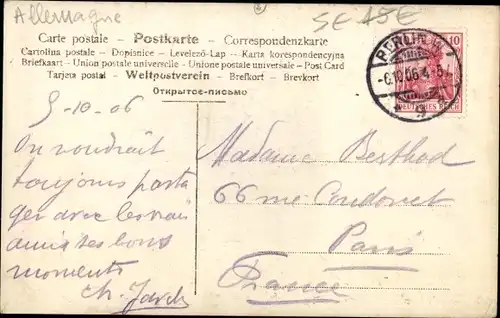 Allemagne
Carte postale – Postkarte – Correspondenzkarte
Cartolina postale – Dopisnice – Levelező-Lap – Karta korespondencyjna
Briefkaart – Union postale universelle – Unione postale universale – Post Card
Tarjeta postal – Weltpostverein – Brefkort – Brevkort
Открытое-письмо
BERLIN W
6.10.06.4-5
10
DEUTSCHES REICH
5-10-06
On voudrait
toujours parta
ger avec les vrais
amis les bons
moments
Ch.
Madame Berthod
66 rue Condorcet
Paris
France